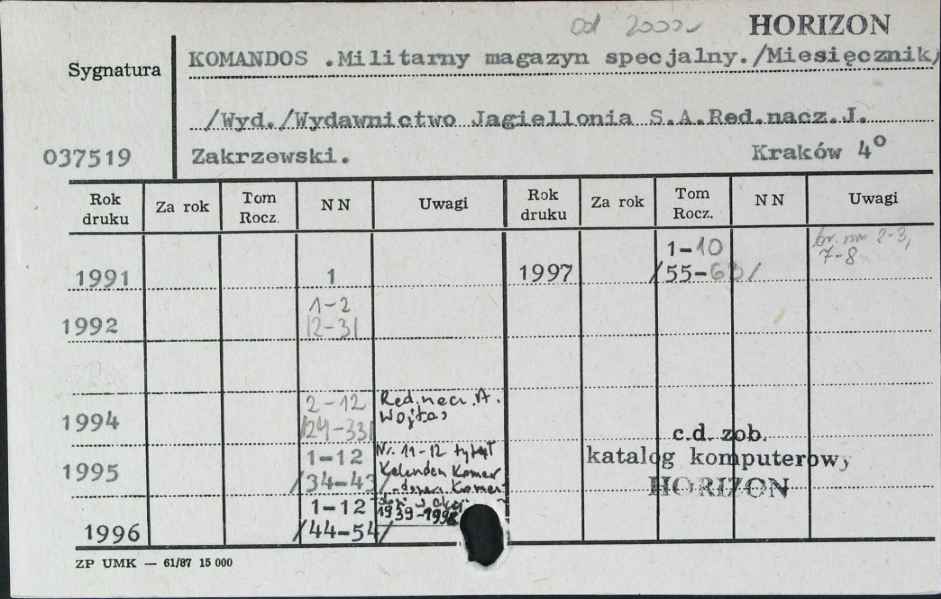 od 2000r HORIZON
Sygnatura
KOMANDOS .Militarny magazyn specjalny./Miesięcznik/
/Wyd./Wydawnictwo Jagiellonia S.A.Red.nacz.J.
037519 Zakrzewski. Kraków 4°
Rok druku Za rok Tom Rocz. NN Uwagi Rok druku Za rok Tom Rocz. NN Uwagi
1991 1 1997 1-10 br. nr 2-3,
/55-63/ 7-8
1992 1-2
/2-3/
1994 2-12 Red. nacz. A.
/24-33/ Wojtas
c.d. zob.
1995 1-12 Nr. 11-12 tytuł
katalog komputerowy
/34-43/
HORIZON
1996 1-12 1939-1996
/44-54/
ZP UMK — 61/87 15 000